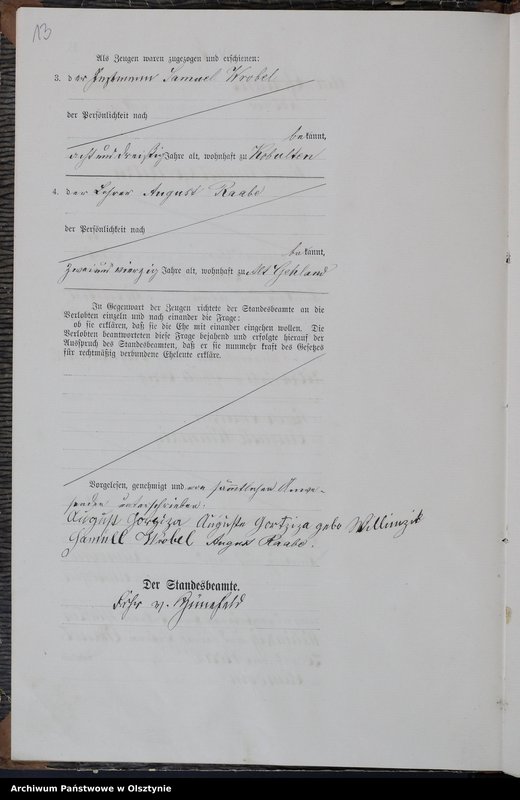 13
Als Zeugen waren zugezogen und erschienen:
3. der Samuel Wrobel
der Persönlichkeit nach
bekannt,
acht und dreißig Jahre alt, wohnhaft zu Kobulten
4. der Lehrer August Raabe
der Persönlichkeit nach
bekannt,
zwei und vierzig Jahre alt, wohnhaft zu Alt Gehland
In Gegenwart der Zeugen richtete der Standesbeamte an die
Verlobten einzeln und nach einander die Frage:
ob sie erklären, daß sie die Ehe mit einander eingehen wollen. Die
Verlobten beantworteten diese Frage bejahend und erfolgte hierauf der
Ausspruch des Standesbeamten, daß er sie nunmehr kraft des Gesetzes
für rechtmäßig verbundene Eheleute erkläre.
Vorgelesen, genehmigt und von sämmtlichen Anwe-
senden unterschrieben:
August Gortziza Auguste Gortziza gebo Willimzik
Samuell Wrobel August Raabe.
Der Standesbeamte.
v.
Archiwum Państwowe w Olsztynie